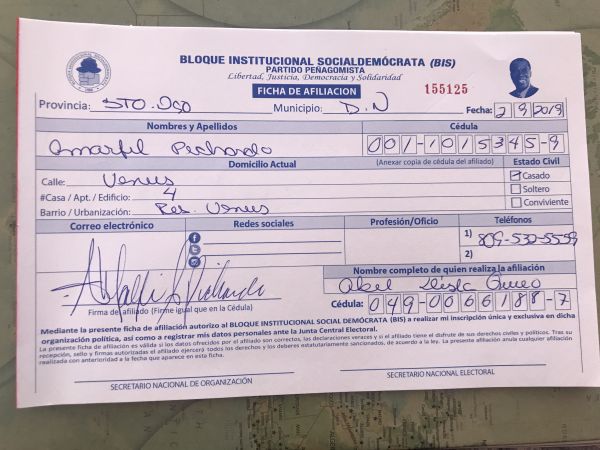 BLOQUE INSTITUCIONAL SOCIALDEMÓCRATA (BIS)
PARTIDO PEÑAGOMISTA
Libertad, Justicia, Democracia y Solidaridad
FICHA DE AFILIACION
155125
Provincia: STO. Dgo Municipio: D.N Fecha: 2 9 2019
Nombres y Apellidos Cédula
Omarfil Pichardo 001-1015345-9
Domicilio Actual (Anexar copia de cédula del afiliado) Estado Civil
Calle: Venus Casado
#Casa / Apt. / Edificio: 4 Soltero
Barrio / Urbanización: Res. Venus Conviviente
Correo electrónico Redes sociales Profesión/Oficio Teléfonos
1) 809-532-5559
2)
Nombre completo de quien realiza la afiliación
Abel
Firma de afiliado (Firme igual que en la Cédula) Cédula: 049-0066188-7
Mediante la presente ficha de afiliación autorizo al BLOQUE INSTITUCIONAL SOCIAL DEMÓCRATA (BIS) a realizar mi inscripción única y exclusiva en dicha
organización política, así como a registrar mis datos personales ante la Junta Central Electoral.
La presente ficha de afiliación es válida si los datos ofrecidos por el afiliado son correctos, las declaraciones veraces y si el afiliado tiene el disfrute de sus derechos civiles y políticos. Tras su
recepción, sello y firmas autorizadas el afiliado ejercerá todos los derechos y los deberes estatutariamente sancionados, de acuerdo a la ley. La presente afiliación anula cualquier afiliación
realizada con anterioridad a la fecha que aparece en esta ficha.
SECRETARIO NACIONAL DE ORGANIZACIÓN SECRETARIO NACIONAL ELECTORAL